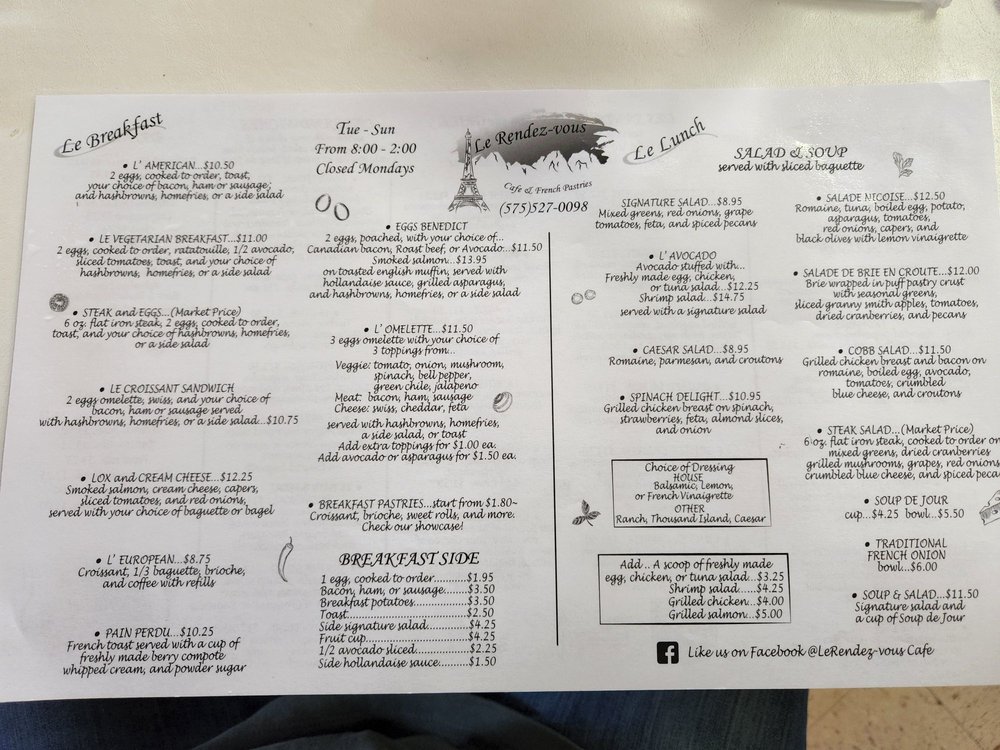 Le Breakfast
• L' AMERICAN...$10.50
2 eggs, cooked to order, toast,
your choice of bacon, ham or sausage,
and hashbrowns, homefries, or a side salad
• LE VEGETARIAN BREAKFAST...$11.00
2 eggs, cooked to order, ratatouille, 1/2 avocado,
sliced tomatoes, toast, and your choice of
hashbrowns, homefries, or a side salad
• STEAK and EGGS...(Market Price)
6 oz. flat iron steak, 2 eggs, cooked to order,
toast, and your choice of hashbrowns, homefries,
or a side salad
• LE CROISSANT SANDWICH
2 eggs omelette, swiss, and your choice of
bacon, ham or sausage served
with hashbrowns, homefries, or a side salad...$10.75
• LOX and CREAM CHEESE...$12.25
Smoked salmon, cream cheese, capers,
sliced tomatoes, and red onions,
served with your choice of baguette or bagel
• L' EUROPEAN...$8.75
Croissant, 1/3 baguette, brioche,
and coffee with refills
• PAIN PERDU...$10.25
French toast served with a cup of
freshly made berry compote
whipped cream, and powder sugar
Tue - Sun
From 8:00 - 2:00
Closed Mondays
Le Rendez-vous
Cafe & French Pastries
(575)527-0098
• EGGS BENEDICT
2 eggs, poached, with your choice of...
Canadian bacon, Roast beef, or Avocado...$11.50
Smoked salmon...$13.95
on toasted english muffin, served with
hollandaise sauce, grilled asparagus,
and hashbrowns, homefries, or a side salad
• L' OMELETTE...$11.50
3 eggs omelette with your choice of
3 toppings from...
Veggie: tomato, onion, mushroom,
spinach, bell pepper,
green chile, jalapeno
Meat: bacon, ham, sausage
Cheese: swiss, cheddar, feta
served with hashbrowns, homefries,
a side salad, or toast
Add extra toppings for $1.00 ea.
Add avocado or asparagus for $1.50 ea.
• BREAKFAST PASTRIES...start from $1.80~
Croissant, brioche, sweet rolls, and more.
Check our showcase!
BREAKFAST SIDE
1 egg, cooked to order...........$1.95
Bacon, ham, or sausage.......$3.50
Breakfast potatoes.................$3.50
Toast.......................................$2.50
Side signature salad..............$4.25
Fruit cup.................................$4.25
1/2 avocado sliced.................$2.25
Side hollandaise sauce..........$1.50
Le Lunch
SALAD & SOUP
served with sliced baguette
SIGNATURE SALAD...$8.95
Mixed greens, red onions, grape
tomatoes, feta, and spiced pecans
• L' AVOCADO
Avocado stuffed with...
Freshly made egg, chicken,
or tuna salad...$12.25
Shrimp salad...$14.75
served with a signature salad
• CAESAR SALAD...$8.95
Romaine, parmesan, and croutons
• SPINACH DELIGHT...$10.95
Grilled chicken breast on spinach,
strawberries, feta, almond slices,
and onion
Choice of Dressing
HOUSE
Balsamic, Lemon,
or French Vinaigrette
OTHER
Ranch, Thousand Island, Caesar
Add .. A scoop of freshly made
egg, chicken, or tuna salad...$3.25
Shrimp salad......$4.25
Grilled chicken...$4.00
Grilled salmon...$5.00
• SALADE NICOISE...$12.50
Romaine, tuna, boiled egg, potato,
asparagus, tomatoes,
red onions, capers, and
black olives with lemon vinaigrette
• SALADE DE BRIE EN CROUTE...$12.00
Brie wrapped in puff pastry crust
with seasonal greens,
sliced granny smith apples, tomatoes,
dried cranberries, and pecans
• COBB SALAD...$11.50
Grilled chicken breast and bacon on
romaine, boiled egg, avocado,
tomatoes, crumbled
blue cheese, and croutons
• STEAK SALAD...(Market Price)
6 oz. flat iron steak, cooked to order on
mixed greens, dried cranberries
grilled mushrooms, grapes, red onions
crumbled blue cheese, and spiced peca
• SOUP DE JOUR
cup...$4.25 bowl...$5.50
• TRADITIONAL
FRENCH ONION
bowl...$6.00
• SOUP & SALAD...$11.50
Signature salad and
a cup of Soup de Jour
Like us on Facebook @LeRendez-vous Cafe